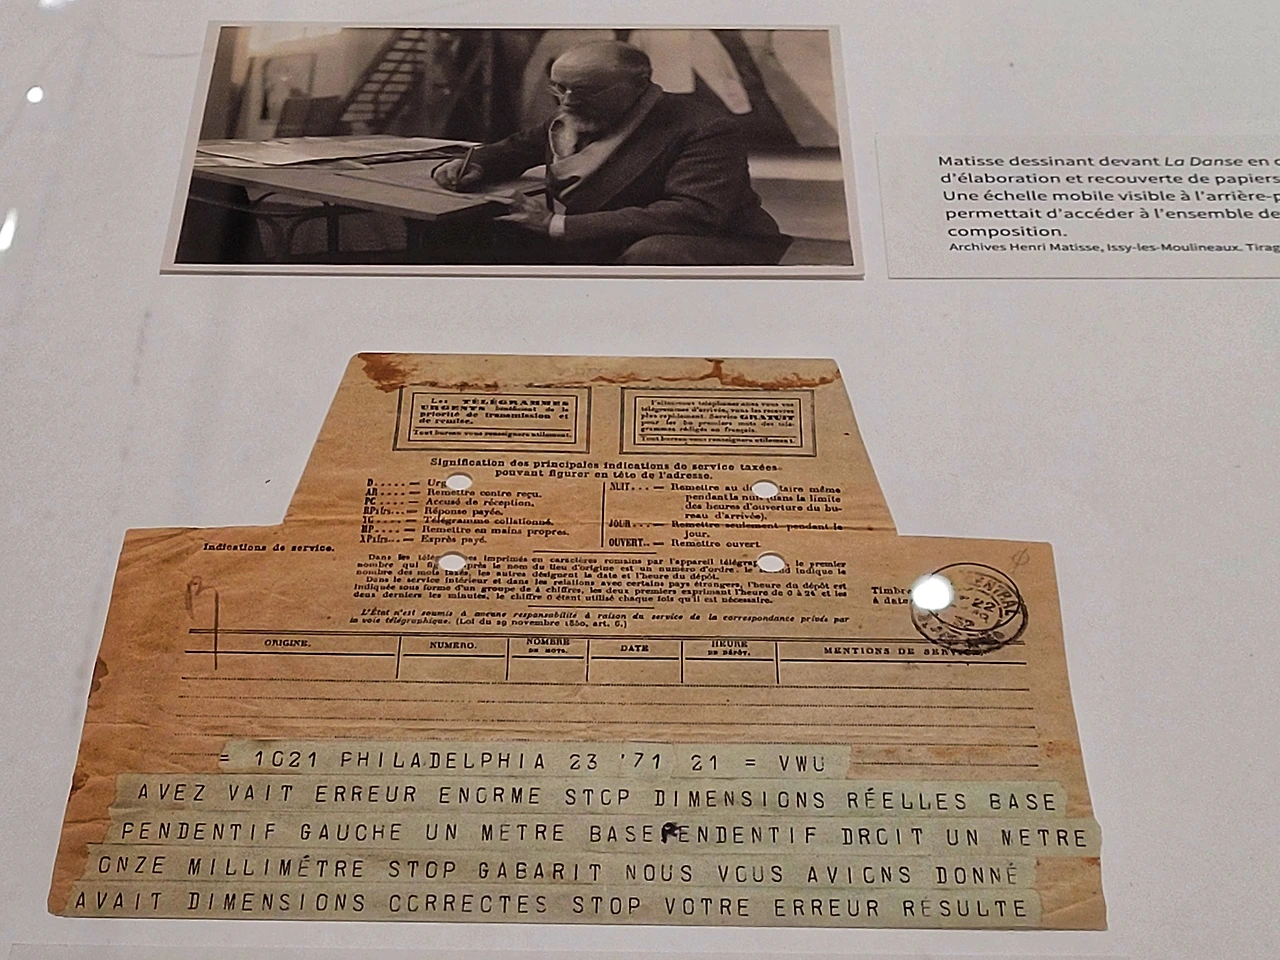 Matisse dessinant devant La Danse en
d'élaboration et recouverte de papiers
Une échelle mobile visible à l'arrière-p
permettait d'accéder à l'ensemble de
composition.
Archives Henri Matisse, Issy-les-Moulineaux. Tirag
Les TÉLÉGRAMMES
URGENTS bénéficient de la
priorité de transmission et
de remise.
Tout bureau vous renseignera utilement.
télégrammes d'arrivée, vous les recevrez
plus rapidement. Service GRATUIT
pour les 50 premiers mots des télé-
grammes rédigés en français.
Tout bureau vous renseignera utilement.
Signification des principales indications de service taxées
pouvant figurer en tête de l'adresse.
D..... — Urg
AR.... — Remettre contre reçu.
PC.... — Accusé de réception.
RPxfrs. — Réponse payée.
TC.... — Télégramme collationné.
MP.... — Remettre en mains propres.
XPxfrs. — Exprès payé.
NUIT... — Remettre au taire même
pendant la nuit dans la limite
des heures d'ouverture du bu-
reau d'arrivée).
JOUR... — Remettre seulement pendant le
jour.
OUVERT.. — Remettre ouvert
Indications de service.
Dans les imprimés en caractères romains par l'appareil le premier
nombre qui après le nom du lieu d'origine est un numéro d'ordre, le indique le
nombre des mots taxés, les autres désignent la date et l'heure du dépôt.
Dans le service intérieur et dans les relations avec certains pays étrangers, l'heure du dépôt est
indiquée sous forme d'un groupe de 4 chiffres, les deux premiers exprimant l'heure de 0 à 24 et les
deux derniers les minutes, le chiffre 0 étant utilisé chaque fois qu'il est nécessaire.
L'État n'est soumis à aucune responsabilité à raison du service de la correspondance privée par
la voie télégraphique. (Loi du 29 novembre 1850, art. 6.)
Timbre
à date
ORIGINE. NUMÉRO. NOMBRE DE MOTS. DATE HEURE DE DÉPÔT. MENTIONS DE SERVICE.
= 1021 PHILADELPHIA 23 '71 21 = VWU
AVEZ VAIT ERREUR ENORME STOP DIMENSIONS RÉELLES BASE
PENDENTIF GAUCHE UN METRE BASEPENDENTIF DROIT UN METRE
ONZE MILLIMÉTRE STOP GABARIT NOUS VOUS AVIONS DONNÉ
AVAIT DIMENSIONS CORRECTES STOP VOTRE ERREUR RÉSULTE